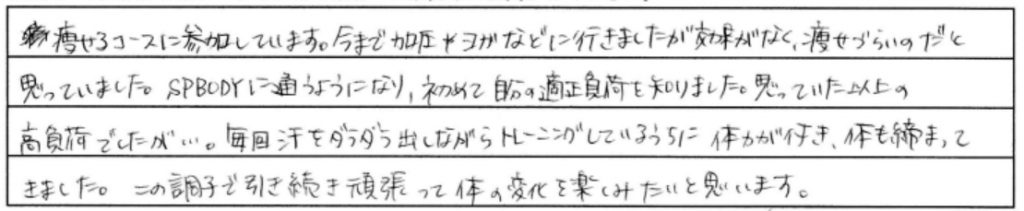 痩せるコースに参加しています。今まで加圧やヨガなどに行きましたが効果がなく、痩せづらいのだと
思っていました。SPBODYに通うようになり、初めて自分の適正負荷を知りました。思っていた以上の
高負荷でしたが…。毎回汗をダラダラ出しながらトレーニングしているうちに体力が付き、体も締まって
きました。この調子で引き続き頑張って体の変化を楽しみたいと思います。